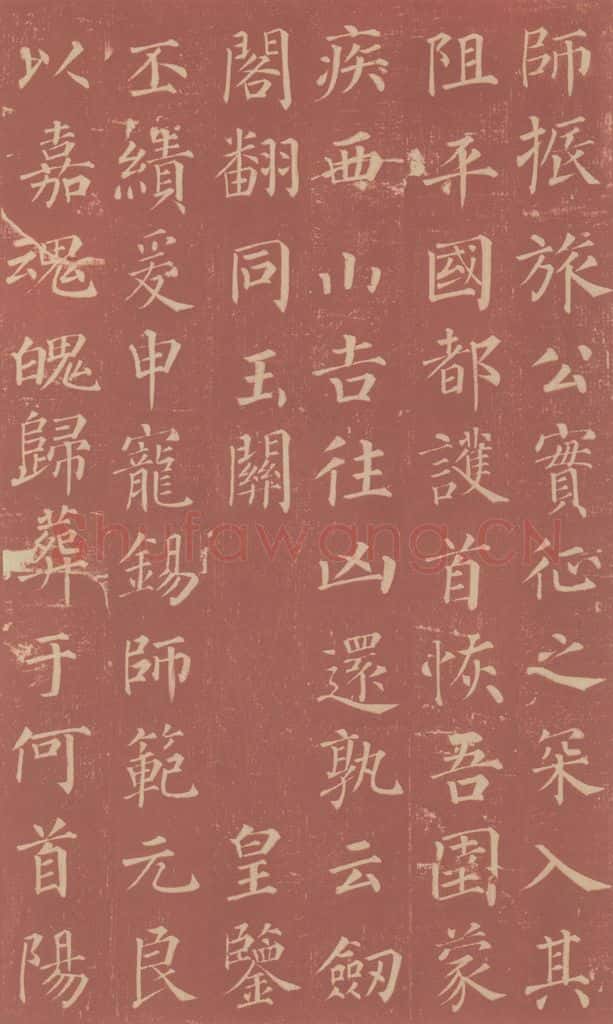 師振旅公實征之罙入其
阻平國都護首恢吾圉蒙
疾西山吉往凶還孰云劒
閣翻同玉關皇鑒
丕績爰申寵錫師範元良
以嘉魂魄歸葬于何首陽
Shufawang.CN